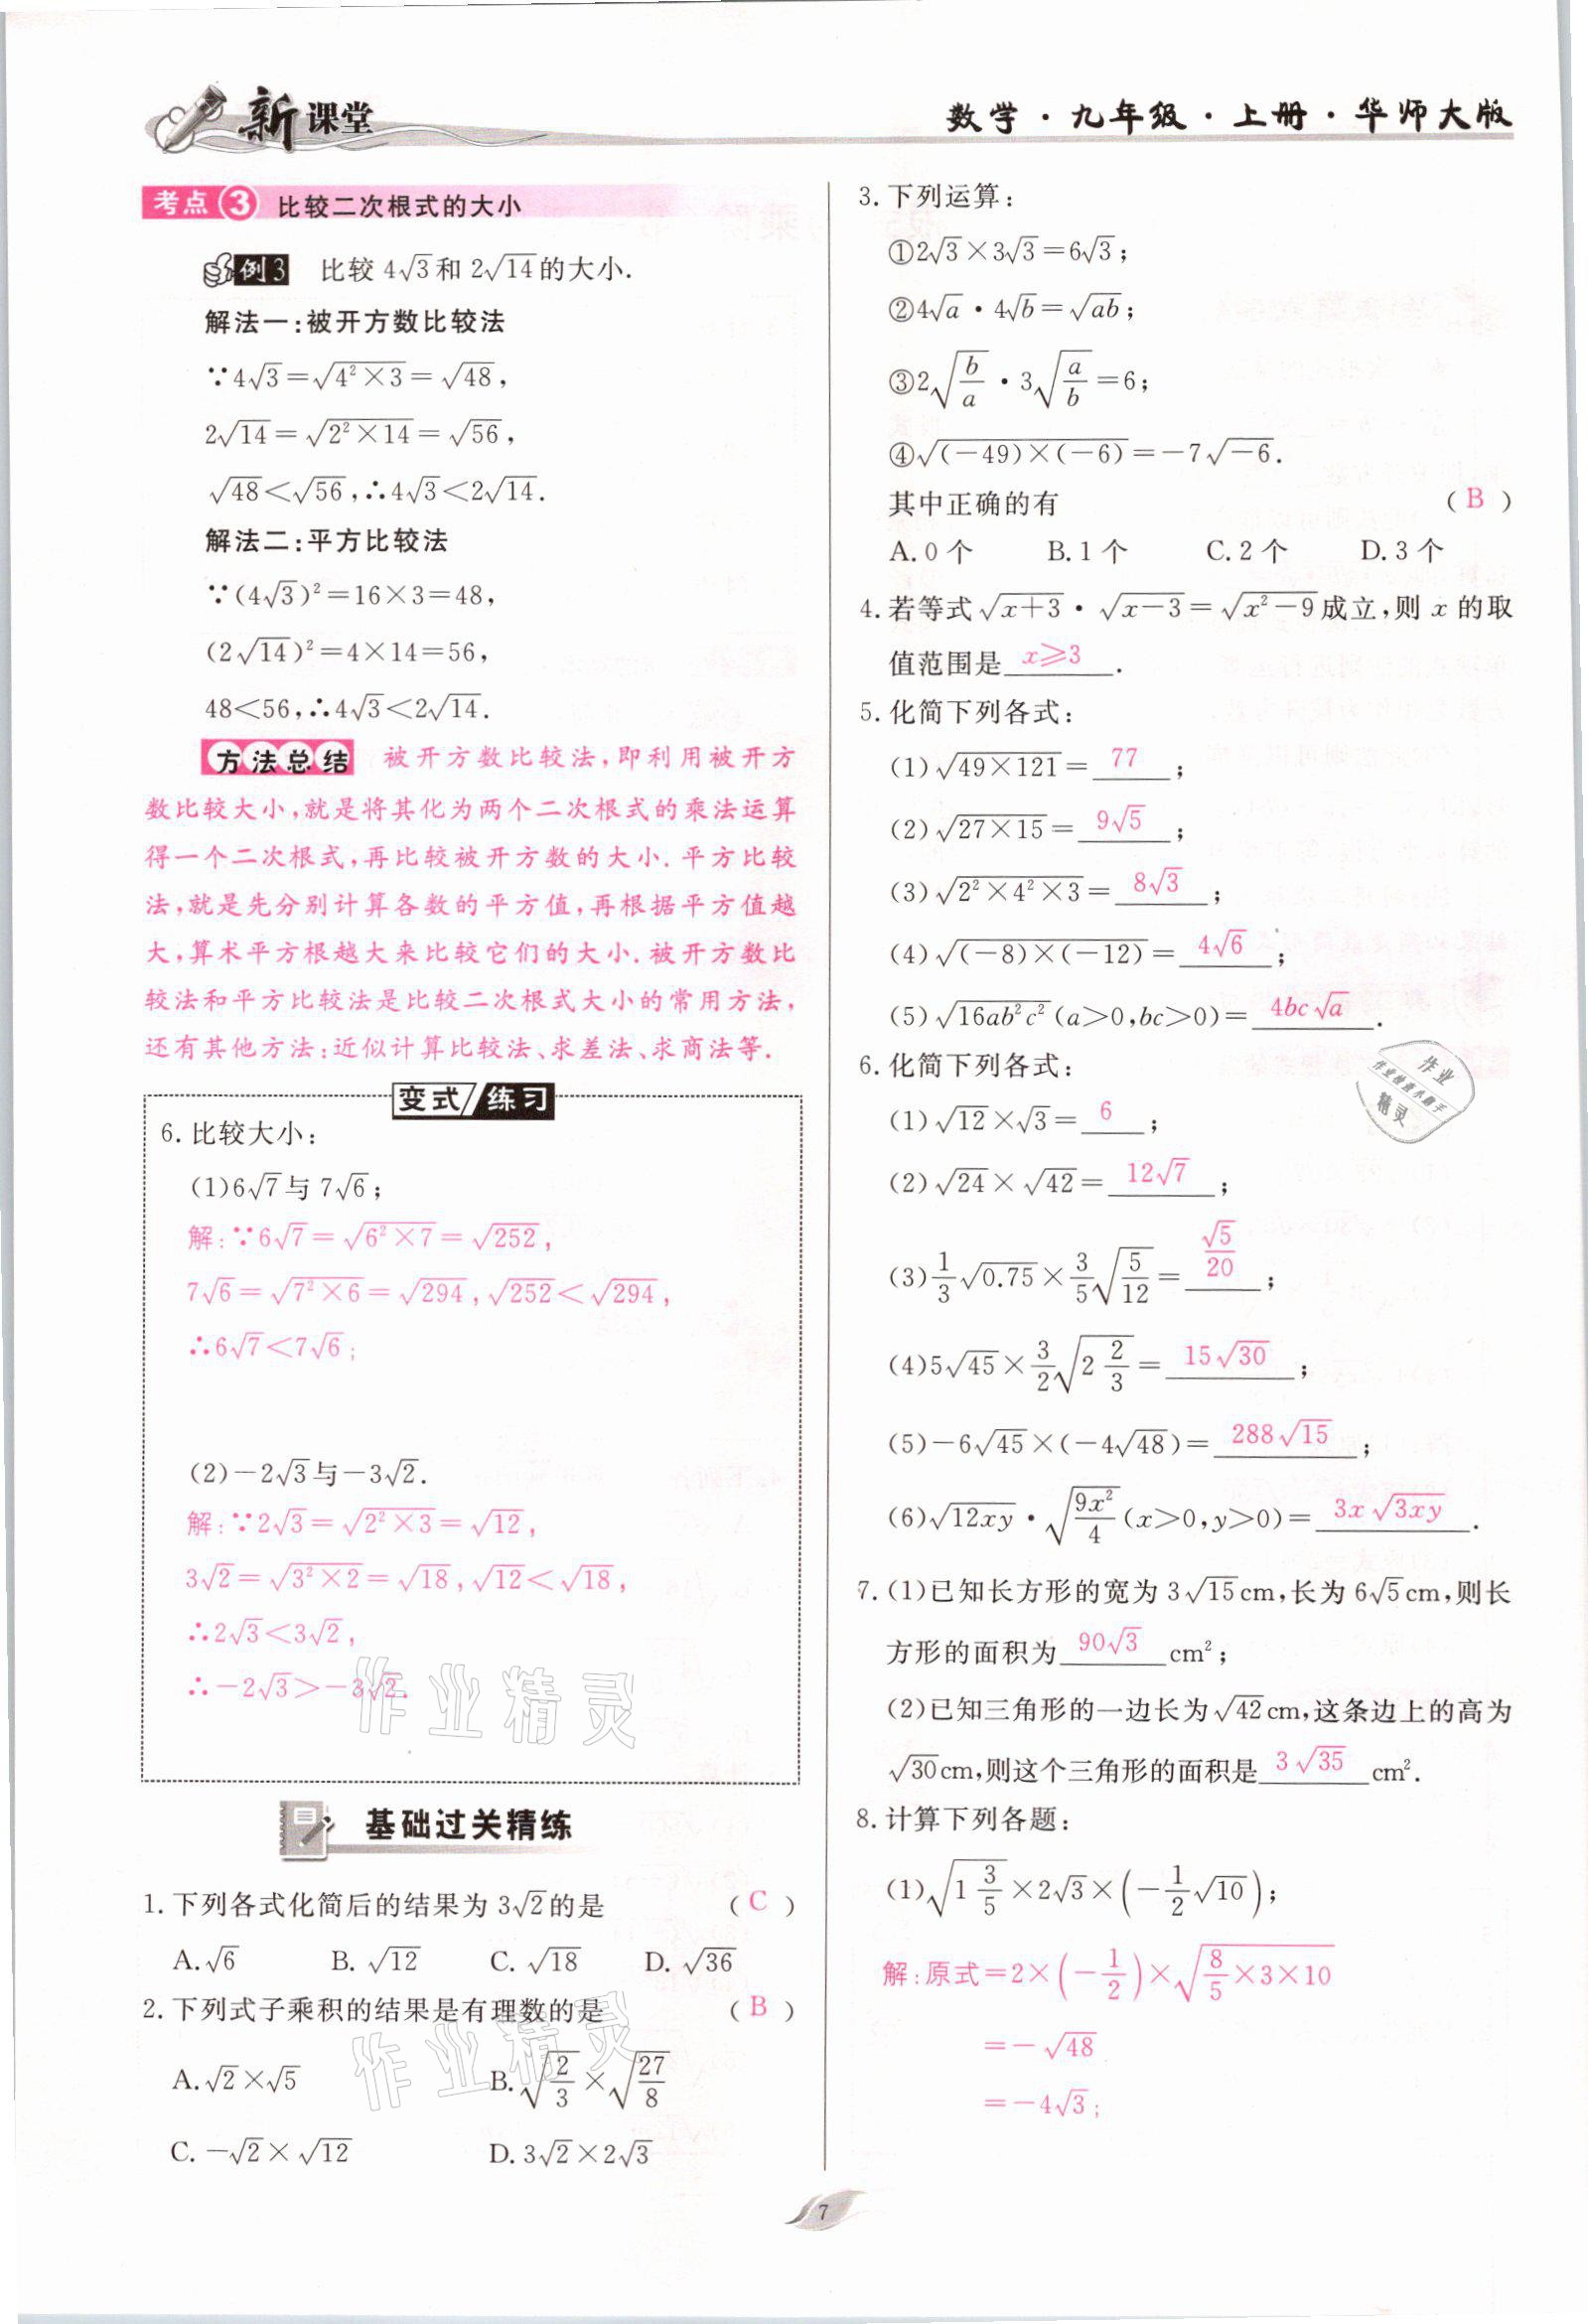 新课堂
数学·九年级·上册·华师大版
考点3 比较二次根式的大小
例3 比较 4√3和 2√14的大小.
解法一:被开方数比较法
∵4√3=√(4²×3)=√48,
2√14=√(2²×14)=√56,
√48<√56,∴4√3<2√14.
解法二:平方比较法
∵(4√3)²=16×3=48,
(2√14)²=4×14=56,
48<56,∴4√3<2√14.
方法总结 被开方数比较法,即利用被开方
数比较大小,就是将其化为两个二次根式的乘法运算
得一个二次根式,再比较被开方数的大小.平方比较
法,就是先分别计算各数的平方值,再根据平方值越
大,算术平方根越大来比较它们的大小.被开方数比
较法和平方比较法是比较二次根式大小的常用方法,
还有其他方法:近似计算比较法、求差法、求商法等.
变式/练习
6.比较大小:
(1)6√7与 7√6;
解:∵6√7=√(6²×7)=√252,
7√6=√(7²×6)=√294,√252<√294,
∴6√7<7√6;
(2)-2√3与-3√2.
解:∵2√3=√(2²×3)=√12,
3√2=√(3²×2)=√18,√12<√18,
∴2√3<3√2,
∴-2√3>-3√2.
作业精灵
基础过关精练
1.下列各式化简后的结果为 3√2的是 ( C )
A.√6 B.√12 C.√18 D.√36
2.下列式子乘积的结果是有理数的是 ( B )
A.√2×√5 B.√(2/3)×√(27/8)
C.-√2×√12 D.3√2×2√3
作业精灵
3.下列运算:
①2√3×3√3=6√3;
②4√a·4√b=√ab;
③2√(b/a)·3√(a/b)=6;
④√((-49)×(-6))=-7√-6.
其中正确的有 ( B )
A.0 个 B.1 个 C.2 个 D.3 个
4.若等式√(x+3)·√(x-3)=√(x²-9)成立,则 x 的取
值范围是 x≥3 .
5.化简下列各式:
(1)√(49×121)= 77 ;
(2)√(27×15)= 9√5 ;
(3)√(2²×4²×3)= 8√3 ;
(4)√((-8)×(-12))= 4√6 ;
(5)√(16ab²c²)(a>0,bc>0)= 4bc√a .
6.化简下列各式:
作业
作业检查小助手
精灵
(1)√12×√3= 6 ;
(2)√24×√42= 12√7 ;
(3)1/3√0.75×3/5√(5/12)= √5/20 ;
(4)5√45×3/2√(2 2/3)= 15√30 ;
(5)-6√45×(-4√48)= 288√15 ;
(6)√12xy·√(9x²/4)(x>0,y>0)= 3x√3xy .
7.(1)已知长方形的宽为 3√15cm,长为 6√5cm,则长
方形的面积为 90√3 cm²;
(2)已知三角形的一边长为√42cm,这条边上的高为
√30cm,则这个三角形的面积是 3√35 cm².
8.计算下列各题:
(1)√(1 3/5)×2√3×(-1/2√10);
解:原式=2×(-1/2)×√(8/5×3×10)
=-√48
=-4√3;
7